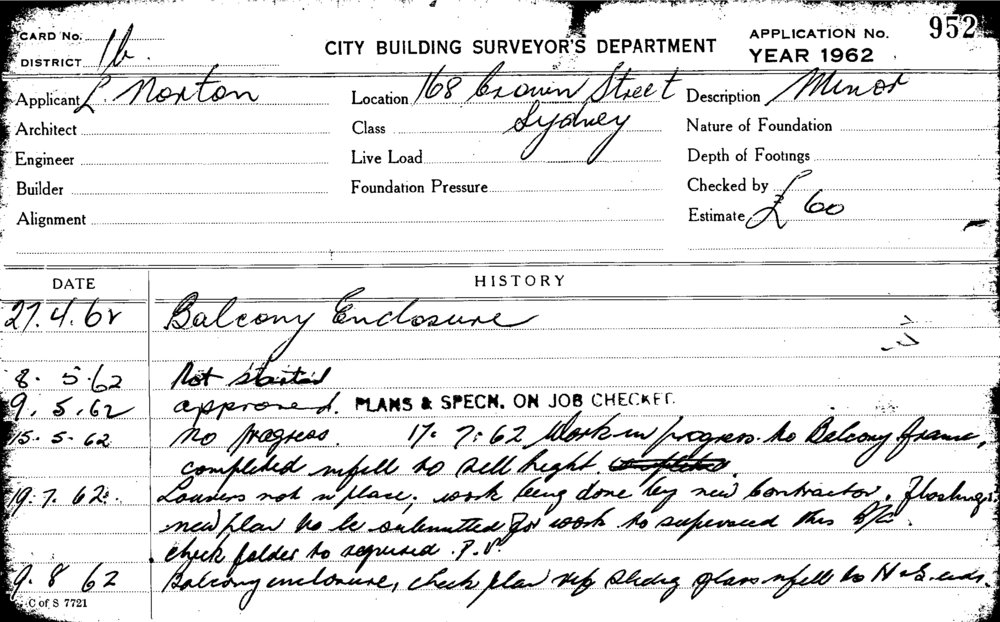 CARD No.
952
DISTRICT 1b.
CITY BUILDING SURVEYOR'S DEPARTMENT
APPLICATION No.
YEAR 1962
Applicant L. Norton
Location 168 Crown Street
Sydney
Description Minor
Architect
Class
Nature of Foundation
Engineer
Live Load
Depth of Footings
Builder
Foundation Pressure
Checked by
Alignment
Estimate £ 60
DATE HISTORY
27.4.62 Balcony Enclosure
8. 5.62 Not started
9. 5.62 approved. PLANS & SPECN. ON JOB CHECKED.
15. 5. 62 No progress. 17. 7. 62 Work in progress to Balcony frame,
completed infill to sill height
19. 7. 62. Louvers not in place, work being done by new contractor.
new plan to be submitted for work to supersede this
check folder to
9. 8 62 Balcony enclosure, check plan sliding glass infill to N & S. ends.
C of S 7721